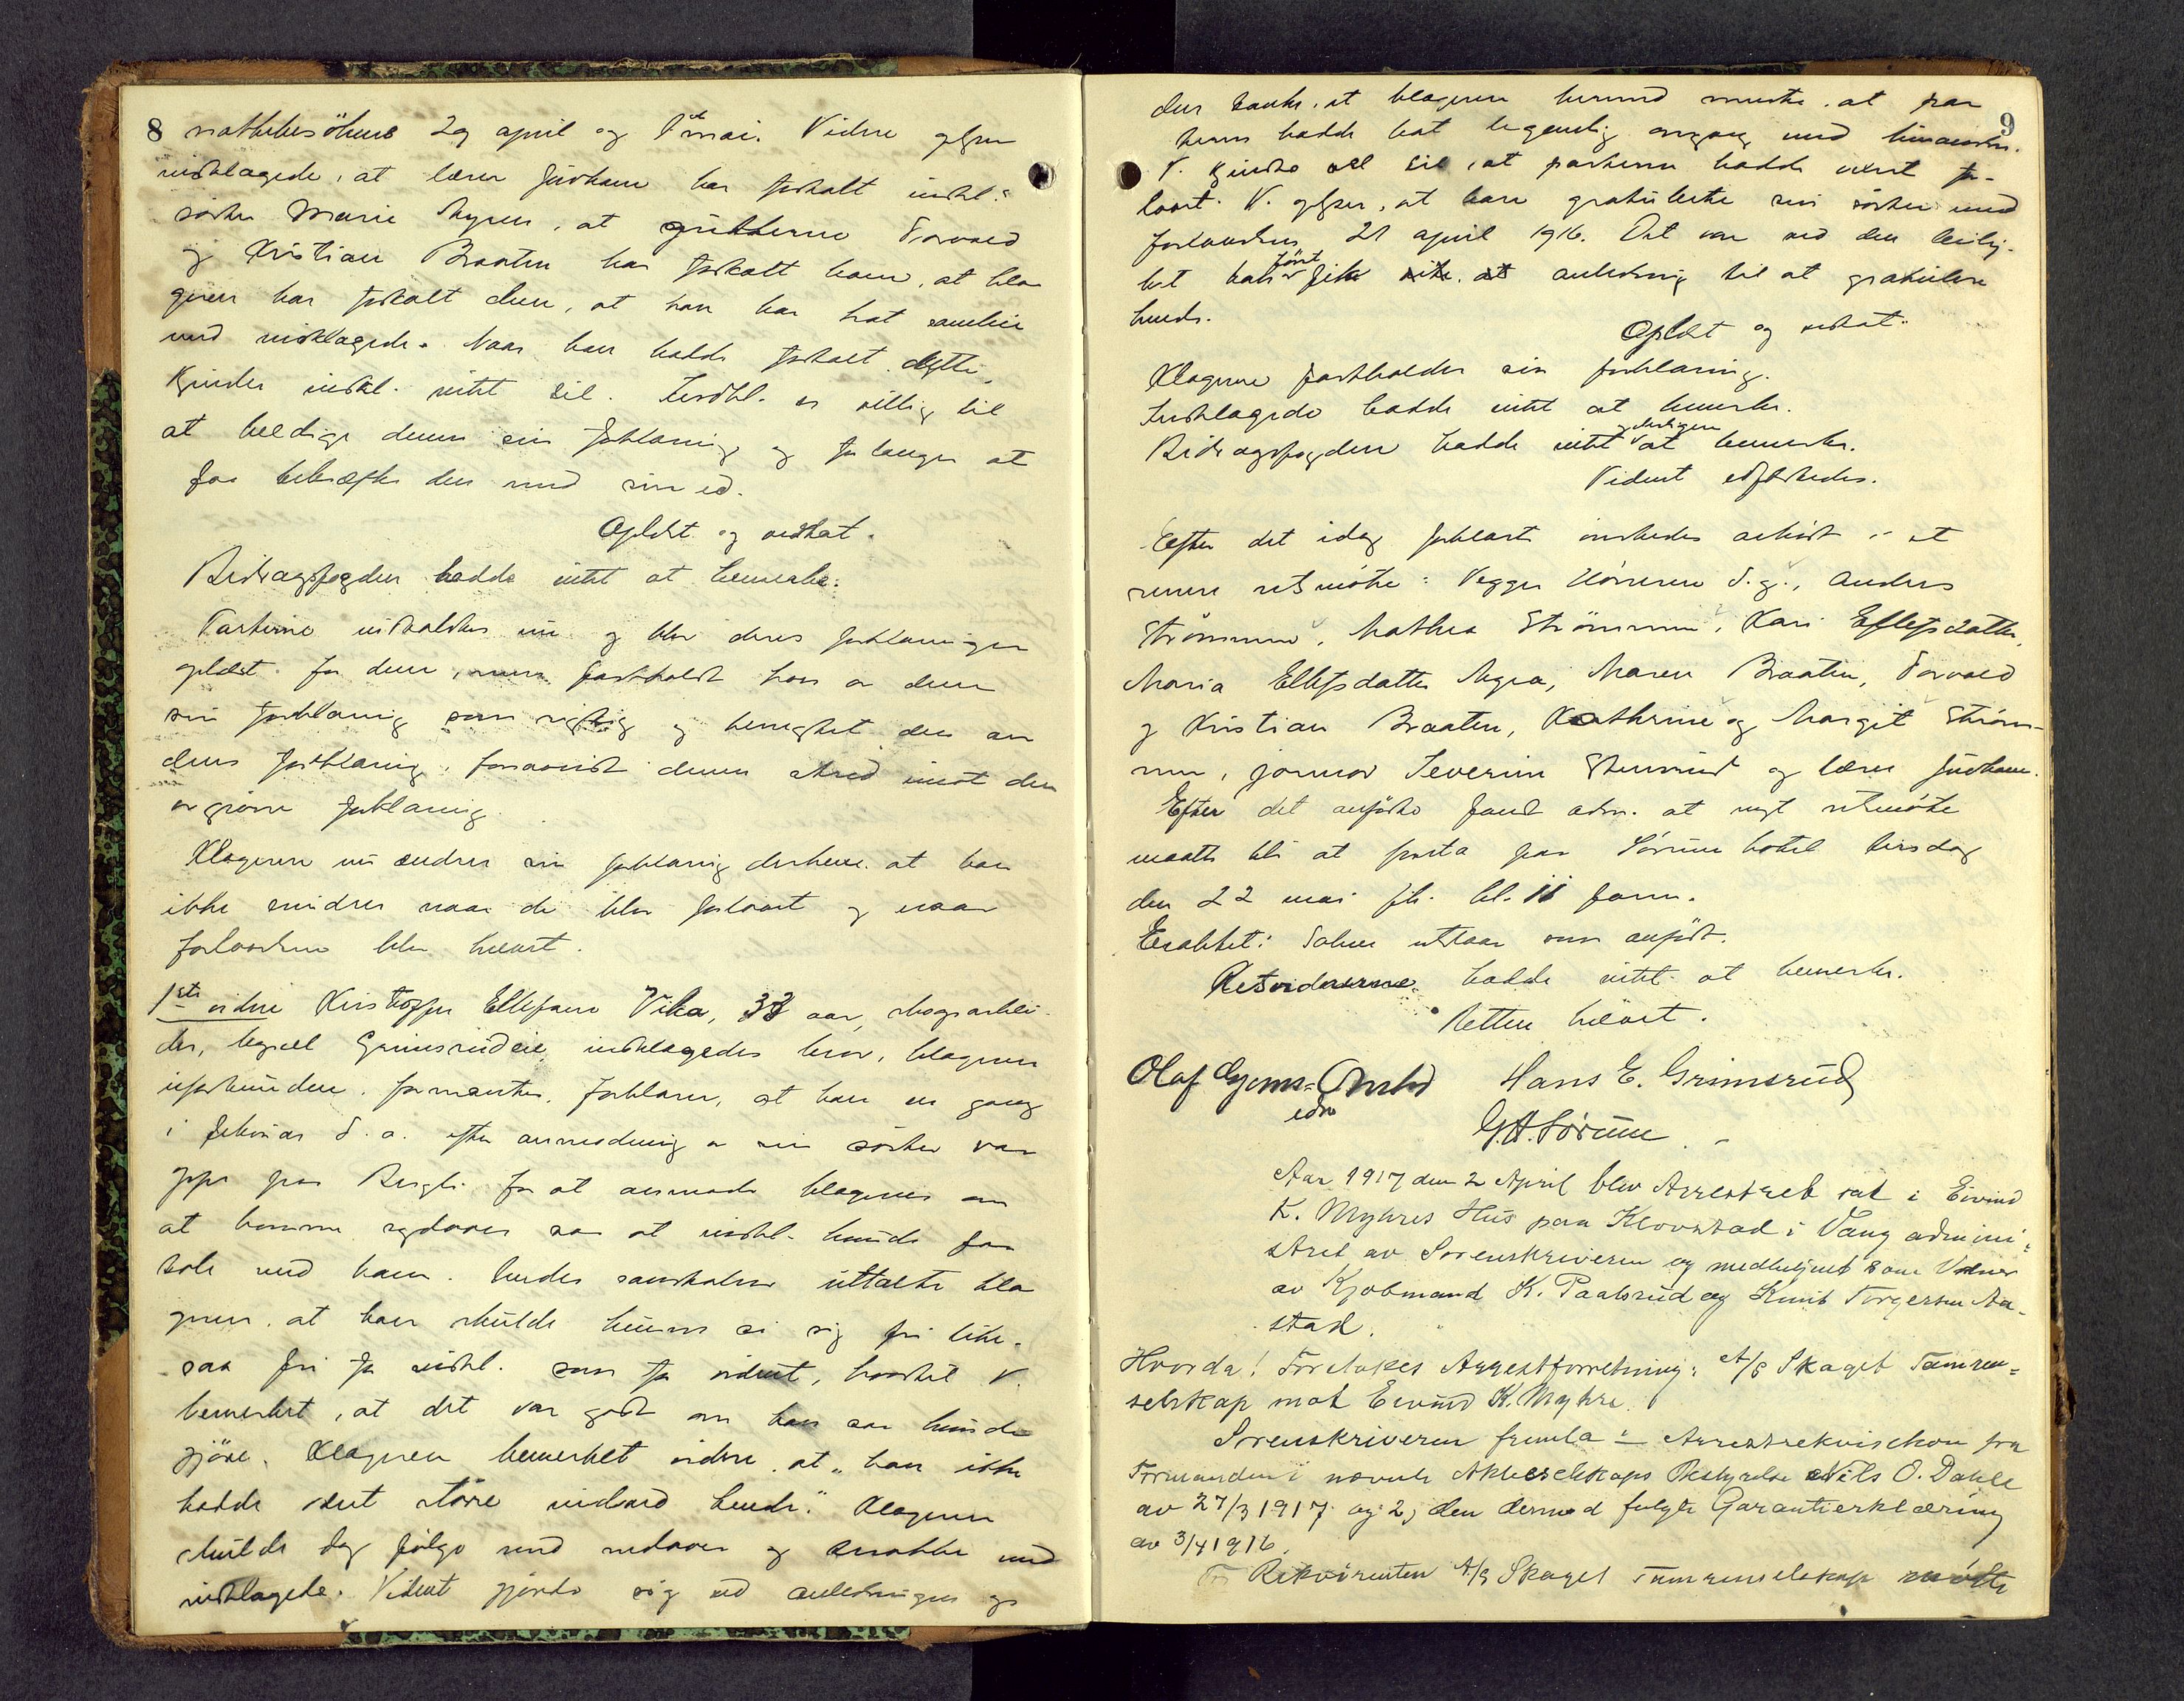 8
nattebesökene 29 april og 1ste mai. Videre oplyser
indklagede, at lærer Juvkam har fortalt indkl.s
søster Marie Myren, at guttene Torvald
og Kristian Braaten har fortalt ham, at kla
geren har fortalt dem, at han har hat samleie
med indklagede. Naar han hadde fortalt dette,
kjender indkl. intet til. Indkl. er villig til
at beedige denne sin forklaring og forlanger at
faa bekræfte den med sin ed.
Oplæst og vedtat.
Bidragsfogden hadde intet at bemerke.
Parterne indkaldtes nu og blev deres forklaringer
oplæst for dem, men fastholdt hver av dem
sin forklaring som rigtig og benegtet den an
dens forklaring, forsaavidt denne stred imot den
avgivne forklaring.
Klageren nu ændrer sin forklaring derhen at han
ikke mindes naar de blev forlovet og naar
forlovelsen blev hævet.
1ste vidne Kristoffer Ellefsen Vika, 33 aar, skogsarbei
der, bopæl Grimsrudeie indklagedes bror, klageren
uforbunden. Formantes. Forklarer, at han en gang
i februar d. a. efter anmodning av sin søster var
oppe paa Bergli for at anmode klageren om
at komme nedover saa at indkl. kunde faa
tale med ham. Under samtalen uttalte kla
geren at han skulde kunne si sig fri like-
saa fri for indkl. som for vidnet, hvortil V.
bemerket, at det var godt om han saa kunde
gjøre. Klageren bemerket videre at "han ikke
hadde været større ved hende." Klageren
skulde dog følge med nedover og snakke med
indklagede. Vidnet gjorde sig ved anledningen op
9
den tanke, at klageren hermed mente at par
terne hadde hat legemlig omgang med hinanden.
V. kjendte vel til, at parterne hadde været for-
lovet. V. oplyser, at han gratulerte sin søster med
forlovelsen 21 april 1916. Det var ved den leilig-
het han først fik anledning til at gratulere
hende.
Oplæst og vedtat.
Klageren fastholder sin forklaring.
Indklagede hadde intet at bemerke.
Bidragsfogden hadde intet yderligere at bemerke.
Vidnet edfæstedes.
Efter det idag forklarte ønskedes avhørt i et
senere retsmøte: Vegger d.y., Anders
Strömmen, Mathea Strömmen, Kari Ellefsdatter,
Maria Ellefsdatter Myra, Maren Braaten, Torvald
og Kristian Braaten, Kathrine og Margit Ström-
men, jormor Severine Stensrud og lærer Juvkam.
Efter det anførte fandt adm. at nyt retsmøte
maatte bli at foreta paa Sørum hotel tirsdag
den 22 mai fk. kl. 11 form.
Eraktet: Saken utstaar som anført.
Retsvidnerne hadde intet at bemerke.
Retten hævet.
Olaf Gjems-Onstad Hans E. Grimsrud
edsv G.A. Sørum
Aar 1917 den 2 April blev Arrestret sat i Eivind
K. Myhres Hus paa Klovstad i Vang admini-
stret av Sorenskriveren og medbetjent som Vidner
av Kjøbmand K. Paalsrud og Knut Torgersen Aa-
stad.
Hvorda! Foretokes Arrestforretning: A/S Skaget Tamren-
selskap mot Eivind K. Myhre.
Sorenskriveren fremla 1) Arrestrekvisition fra
Formanden i nævnte Aktieselskaps Bestyrelse Nils O. Dahle
av 27/3 1917 og 2) den dermed fulgte Garantierklæring
av 3/4 1916.
For Rekvirenten A/S Skaget Tamrenselskap møtte